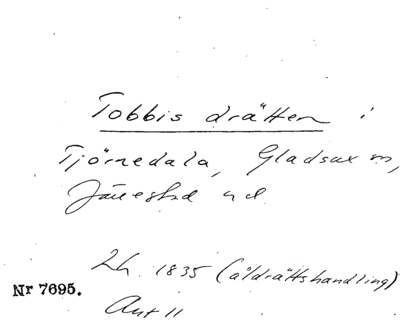 Tobbis drätten i
Tjörnedala, Gladsax sn,
Järrestad hd
Lh 1835 (åldrättshandling)
Nr 7695.
Avt 11